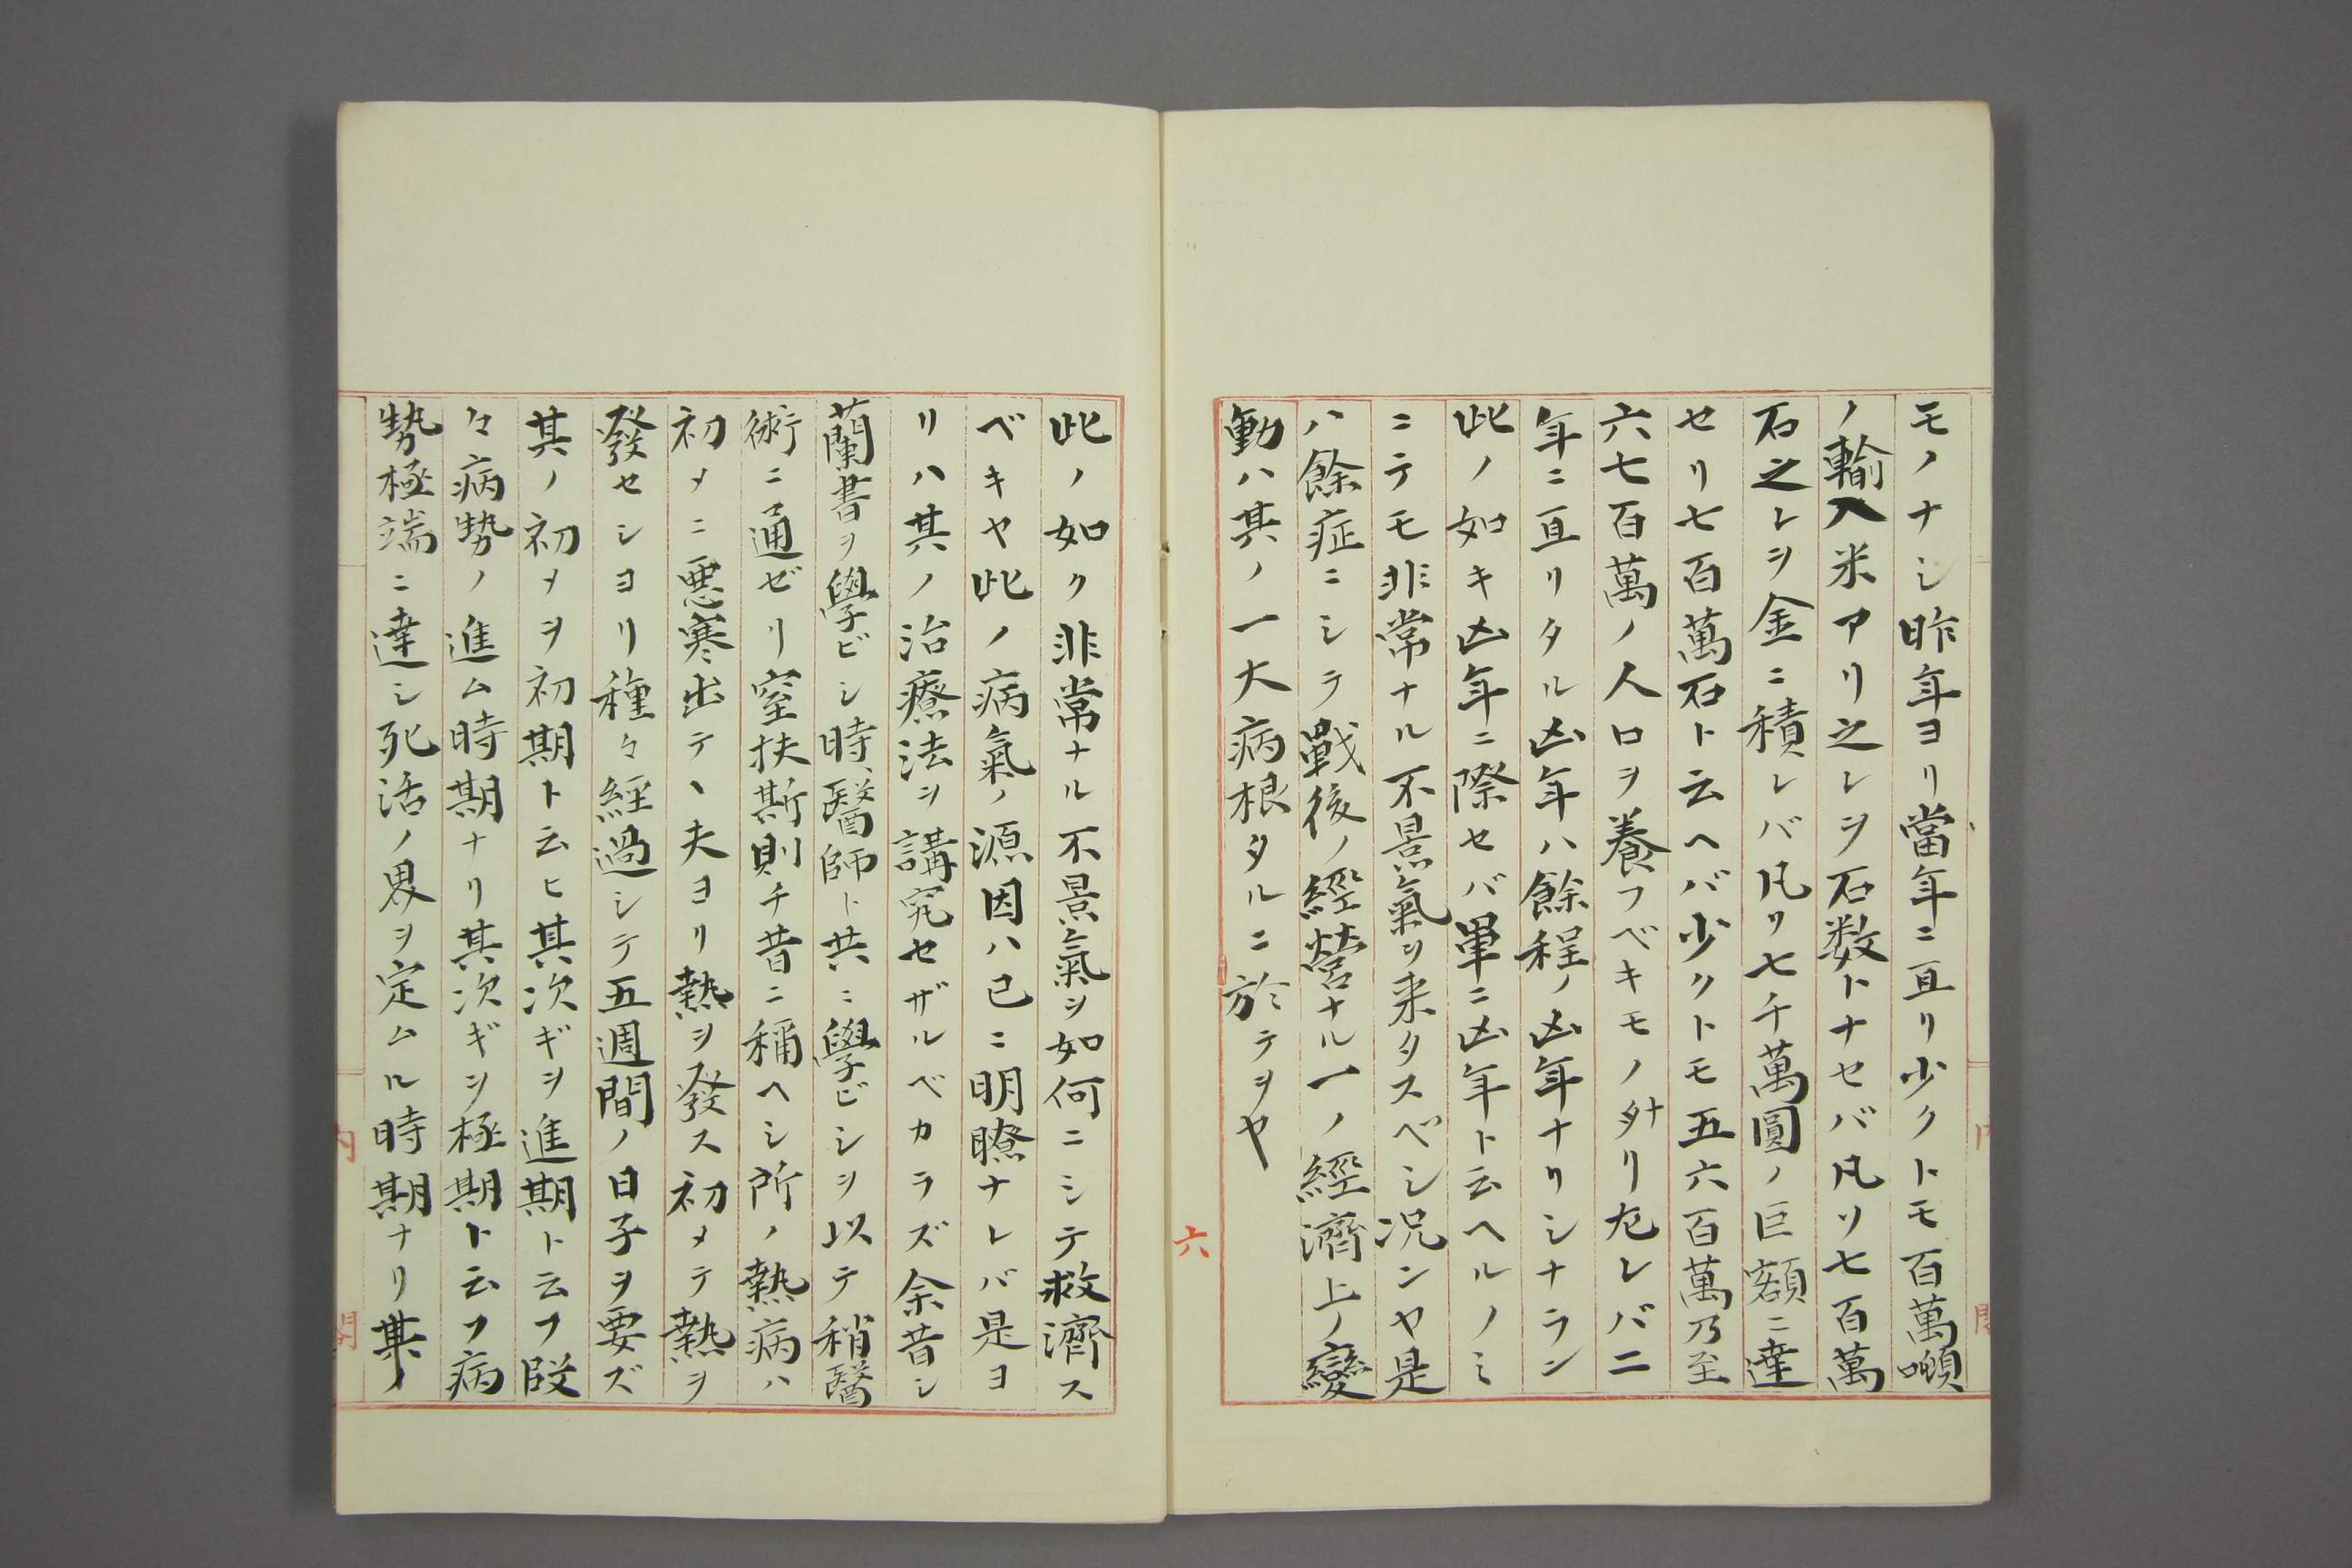 モノナシ昨年ヨリ當年ニ亘リ少クトモ百萬噸
ノ輸入米アリ之レヲ石数トナセバ凡ソ七百萬
石之レヲ金ニ積レバ凡リ七千萬圓ノ巨額ニ達
セリ七百萬石ト云ヘバ少クトモ五六百萬乃至
六七百萬ノ人口ヲ養フベキモノナリ左レバ二
年ニ亘リタル凶年ハ餘程ノ凶年ナリシナラン
此ノ如キ凶年ニ際セバ單ニ凶年ト云ヘルノミ
ニテモ非常ナル不景氣ヲ来タスベシ况ンヤ是
ハ餘症ニシテ戰後ノ經營ナル一ノ經濟上ノ變
動ハ其ノ一大病根タルニ於テヲヤ
六
此ノ如ク非常ナル不景氣ヲ如何ニシテ救濟ス
ベキヤ此ノ病氣ノ源因ハ已ニ明瞭ナレバ是ヨ
リハ其ノ治療法ヲ講究セザルベカラズ余昔シ
蘭書ヲ學ビシ時、醫師ト共ニ學ビシヲ以テ稍醫
術ニ通ゼリ窒扶斯則チ昔ニ稱ヘシ所ノ熱病ハ
初メニ悪寒出テヽ夫ヨリ熱ヲ發ス初メテ熱ヲ
發セシヨリ種々經過シテ五週間ノ日子ヲ要ズ
其ノ初メヲ初期ト云ヒ其次ギヲ進期ト云フ段
々病勢ノ進ム時期ナリ其次ギヲ極期ト云フ病
勢極端ニ達シ死活ノ界ヲ定ムル時期ナリ其ノ
内閣